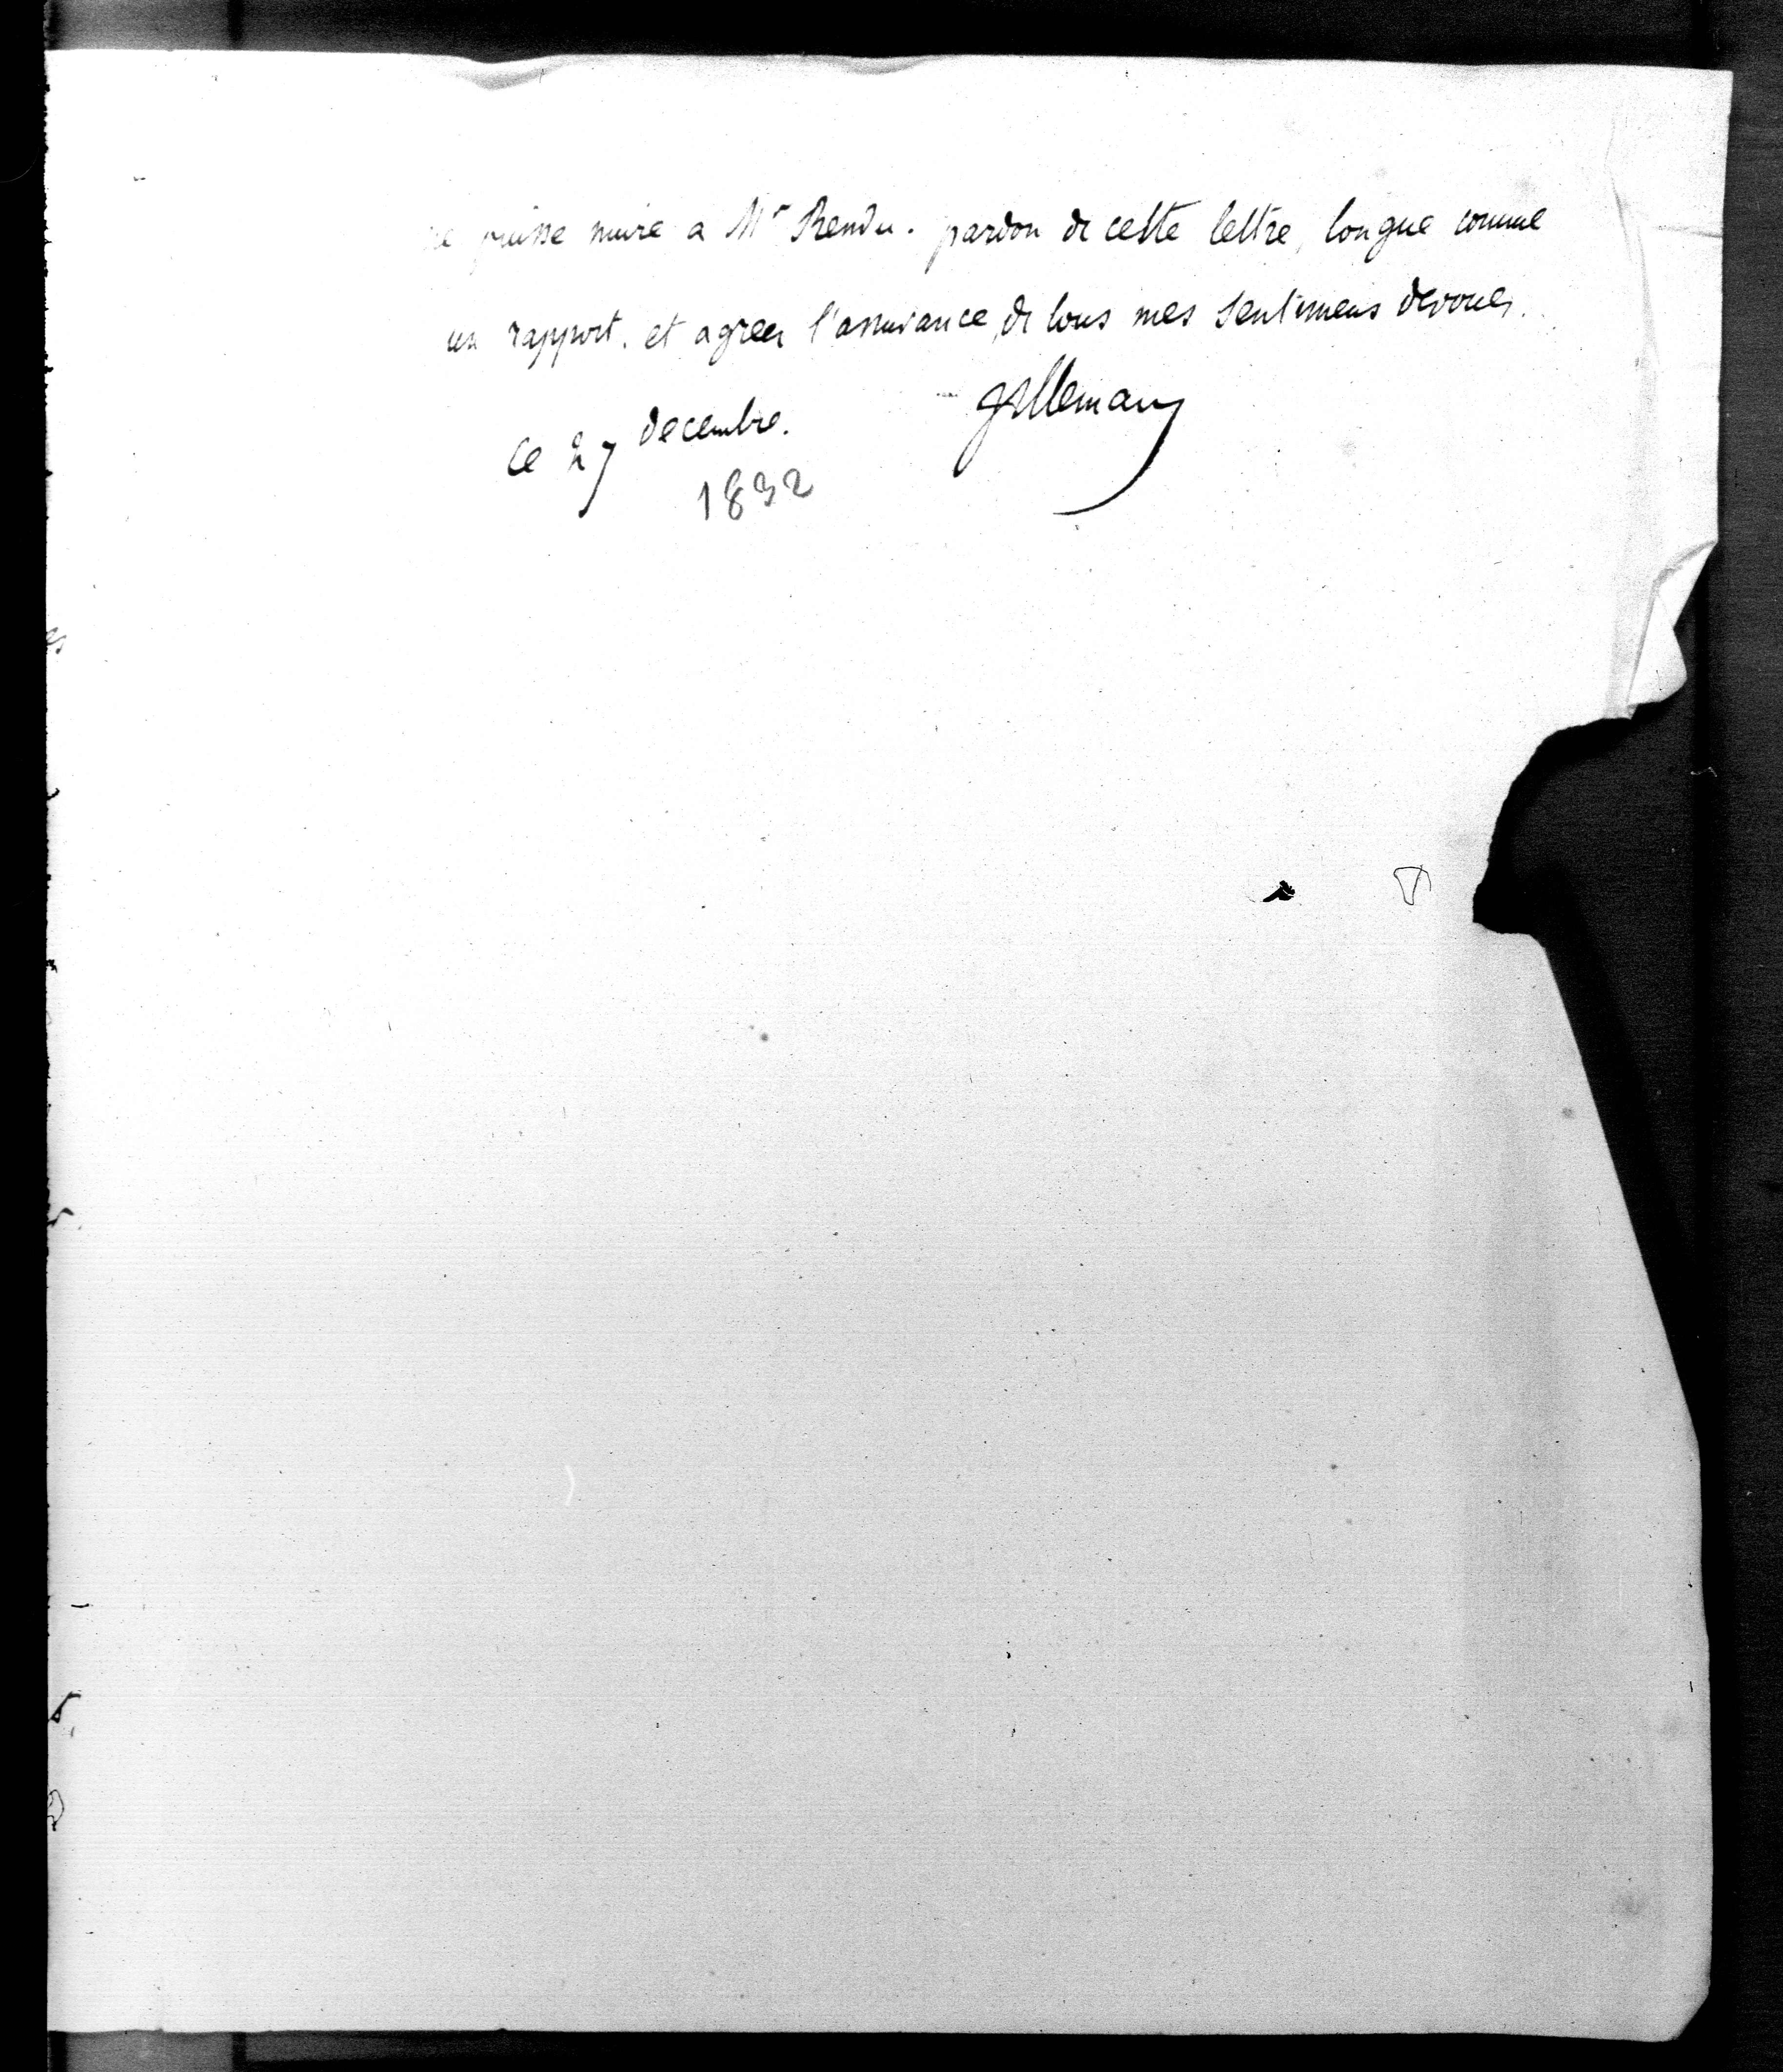 ne puisse nuire a Mr Rendu. pardon de cette lettre, longue comme
un rapport. et agreer l'assurance de tous mes sentimens devoués.
Villemain
ce 27 decembre.
1832